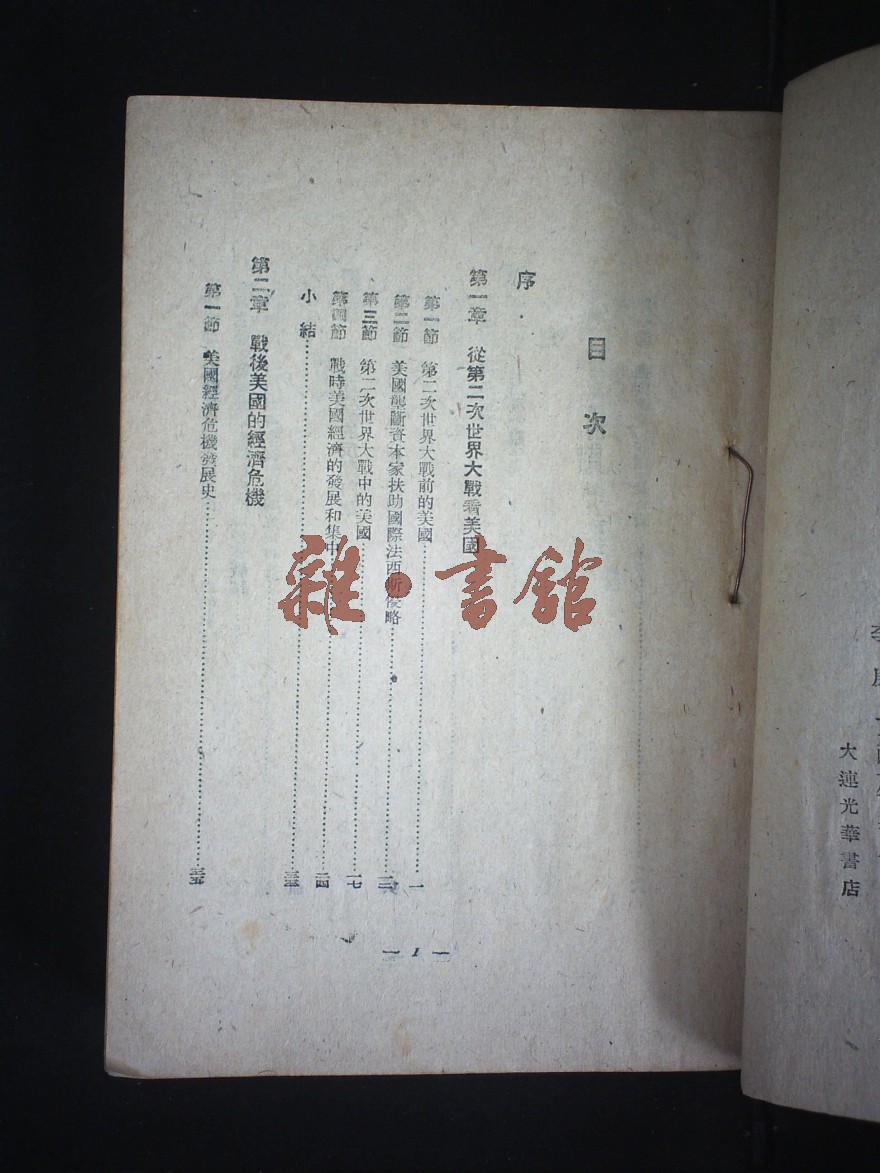 目次
序
第一章 從第二次世界大戰看美國
第一節 第二次世界大戰前的美國……一
第二節 美國壟斷資本家扶助國際法西斯侵略……一二
第三節 第二次世界大戰中的美國……一七
第四節 戰時美國經濟的發展和集中……二四
小結……
第二章 戰後美國的經濟危機
第一節 美國經濟危機發展史……
— 1 —
大連光華書店
雜·書館